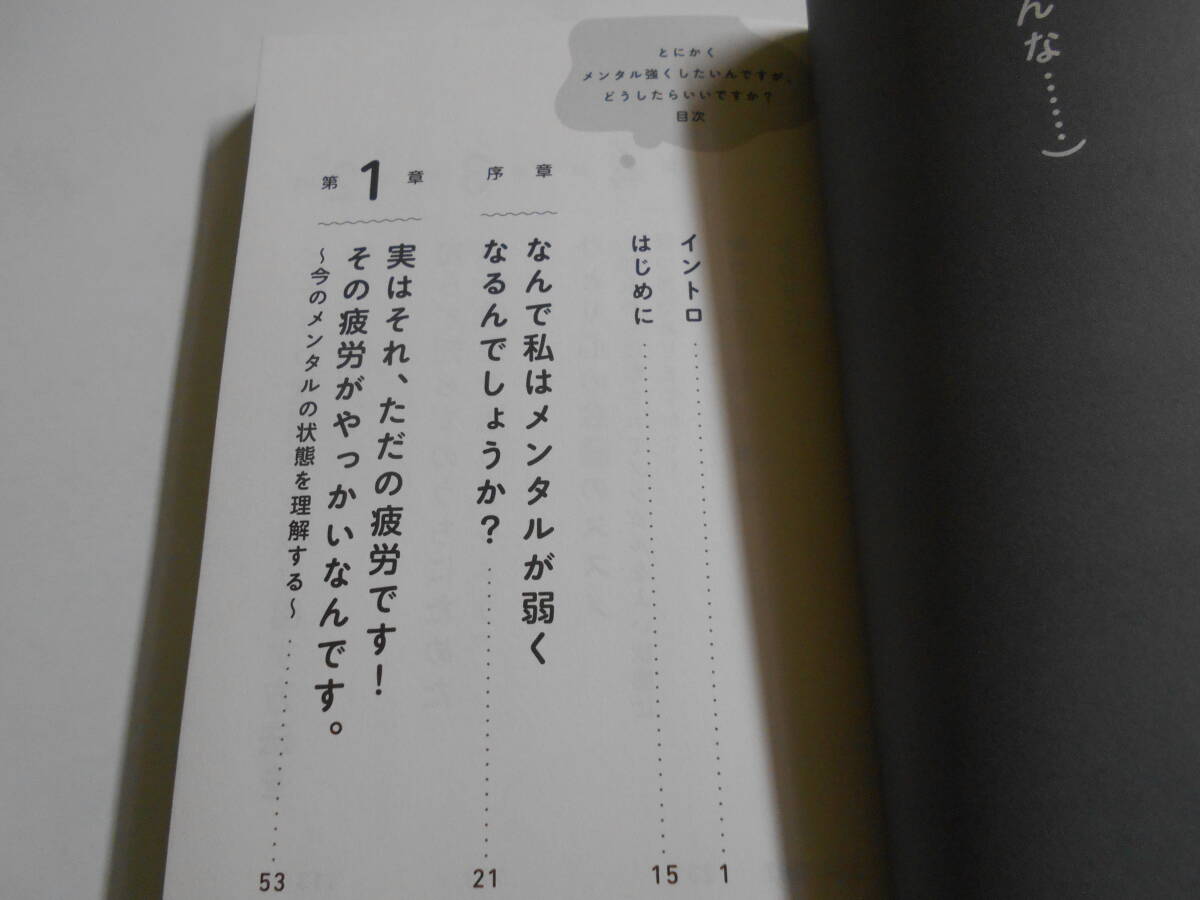 んな……)
とにかく
メンタル強くしたいんですが、
どうしたらいいですか?
目次
イントロ……1
はじめに……15
序章
なんで私はメンタルが弱く
なるんでしょうか?……21
第1章
実はそれ、ただの疲労です!
その疲労がやっかいなんです。
~今のメンタルの状態を理解する~……53